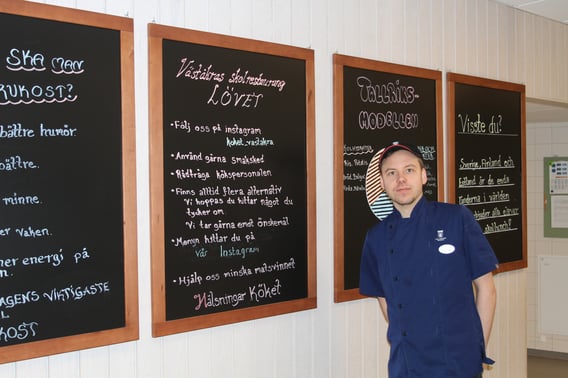 SKA MAN
RUKOST?
bättre humör
bättre.
minne.
er vaken.
mer energi på
en.
DAGENS VIKTIGASTE
L
KOST
Väståkras skolrestaurang
LÖVET
• Följ oss på instagram
koket_vastakra
• Använd gärna smaksked
• Rådfråga kökspersonalen
• Finns alltid flera alternativ
Vi hoppas du hittar något du
tycker om.
Vi tar gärna emot önskemål
• Menyn hittar du på
vår Instagram
• Hjälp oss minska matsvinnet
Hälsningar Köket
TALLRIKS-
MODELLEN
Visste du?
Sverige, Finland och
Estland är de enda
länderna i världen
alla elever
skollunch?